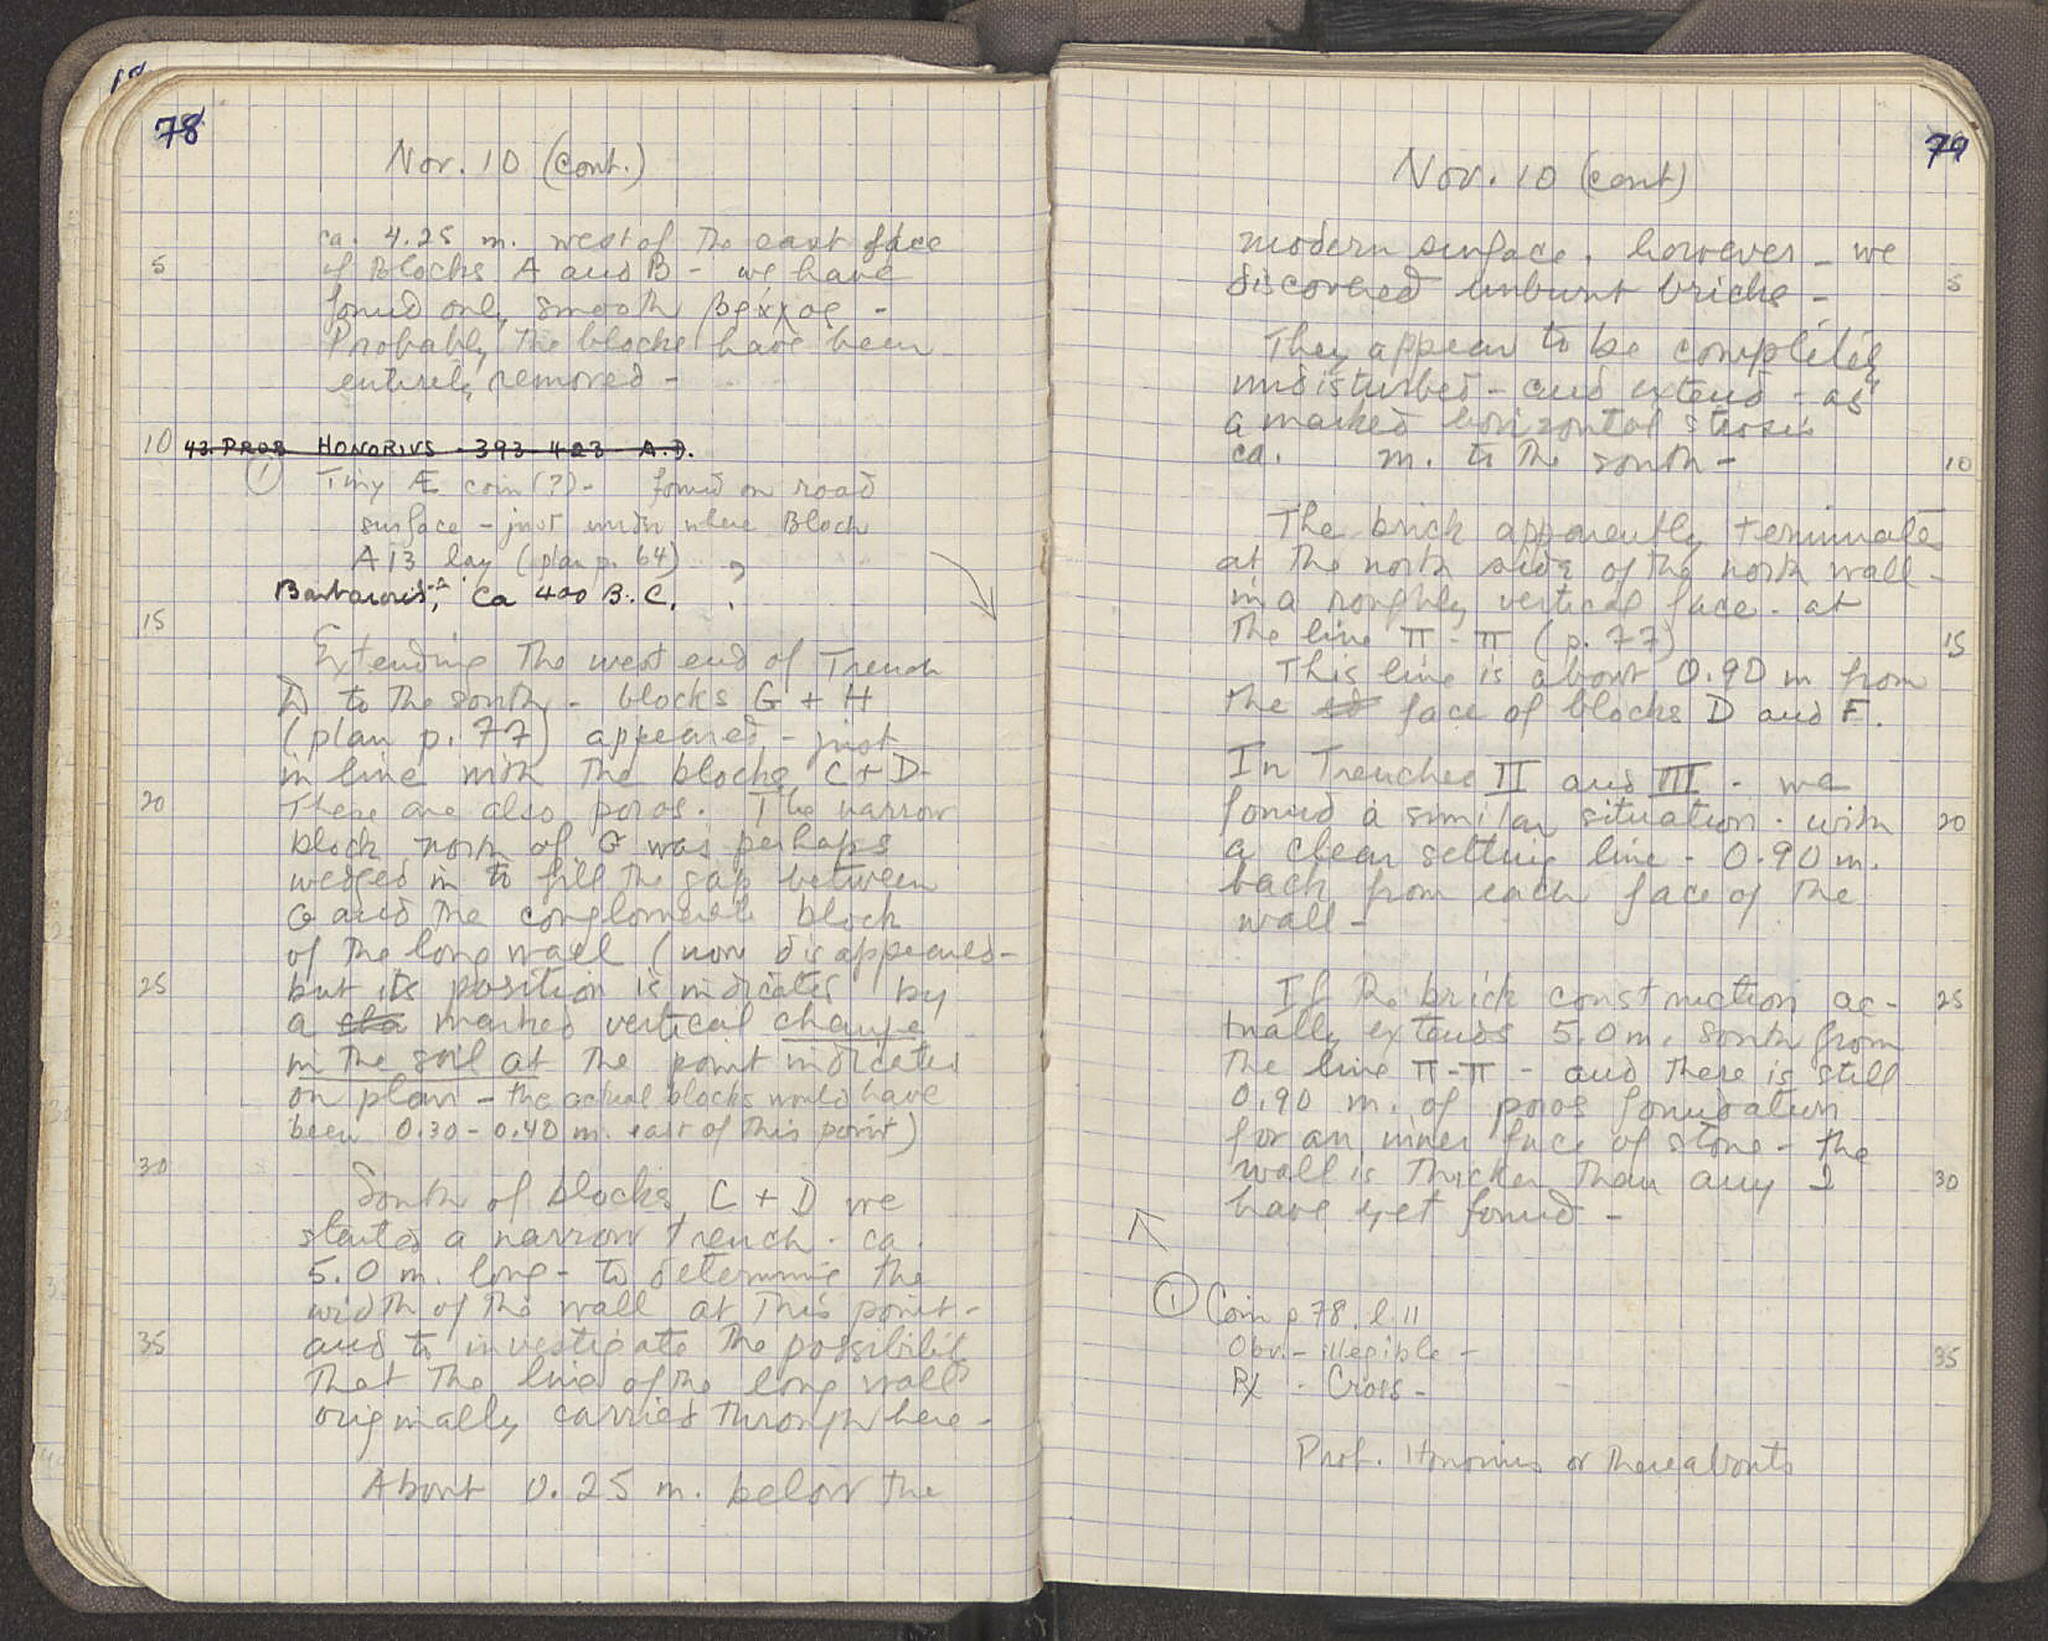 78
Nov. 10 (cont.)
ca. 4.25 m. west of the east face
5 of Blocks A and B - we have
found only smooth βράχος -
Probably the blocks have been
entirely removed -
10 43. PROB HONORIUS - 393-423 A.D.
① Tiny Æ coin (?) - found on road
surface - just under where Block
A13 lay (plan p. 64)
Barbarous?, ca 400 B.C.
15
Extending the west end of Trench
to the south - blocks G + H
(plan p. 77) appeared - just
in line with the blocks C + D -
20 These are also poros. The narrow
block north of G was perhaps
wedged in to fill the gap between
G and the conglomerate block
of the long wall (now disappeared -
25 but its position is indicated by
a marked vertical change
in the soil at the point indicated
on plan - the actual blocks would have
been 0.30 - 0.40 m. east of this point)
30
South of blocks C + D we
started a narrow trench - ca.
5.0 m. long - to determine the
width of the wall at this point -
35 and to investigate the possibility
that the line of the long wall
originally carried through here -
About 0.25 m. below the
79
Nov. 10 (cont)
modern surface, however - we
discovered unburnt bricks - 5
They appear to be completely
undisturbed - and extend - as
a marked horizontal strosis
ca. m. to the south - 10
The brick apparently terminates
at the north side of the north wall -
in a roughly vertical face - at
the line π - π (p. 77) 15
This line is about 0.90 m from
the face of blocks D and F.
In Trenches II and III - we
found a similar situation - with 20
a clear setting line - 0.90 m.
back from each face of the
wall -
If the brick construction ac- 25
tually extends 5.0 m. south from
the line π-π - and there is still
0.90 m. of poros foundation
for an inner face of stone - the
wall is thicker than any I 30
have yet found -
① Coin p 78, l. 11
Obv. - illegible - 35
Rx - Cross -
Prof. Honorius or thereabouts